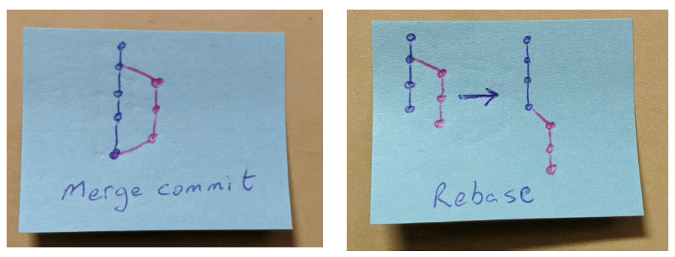 Merge commit
Rebase